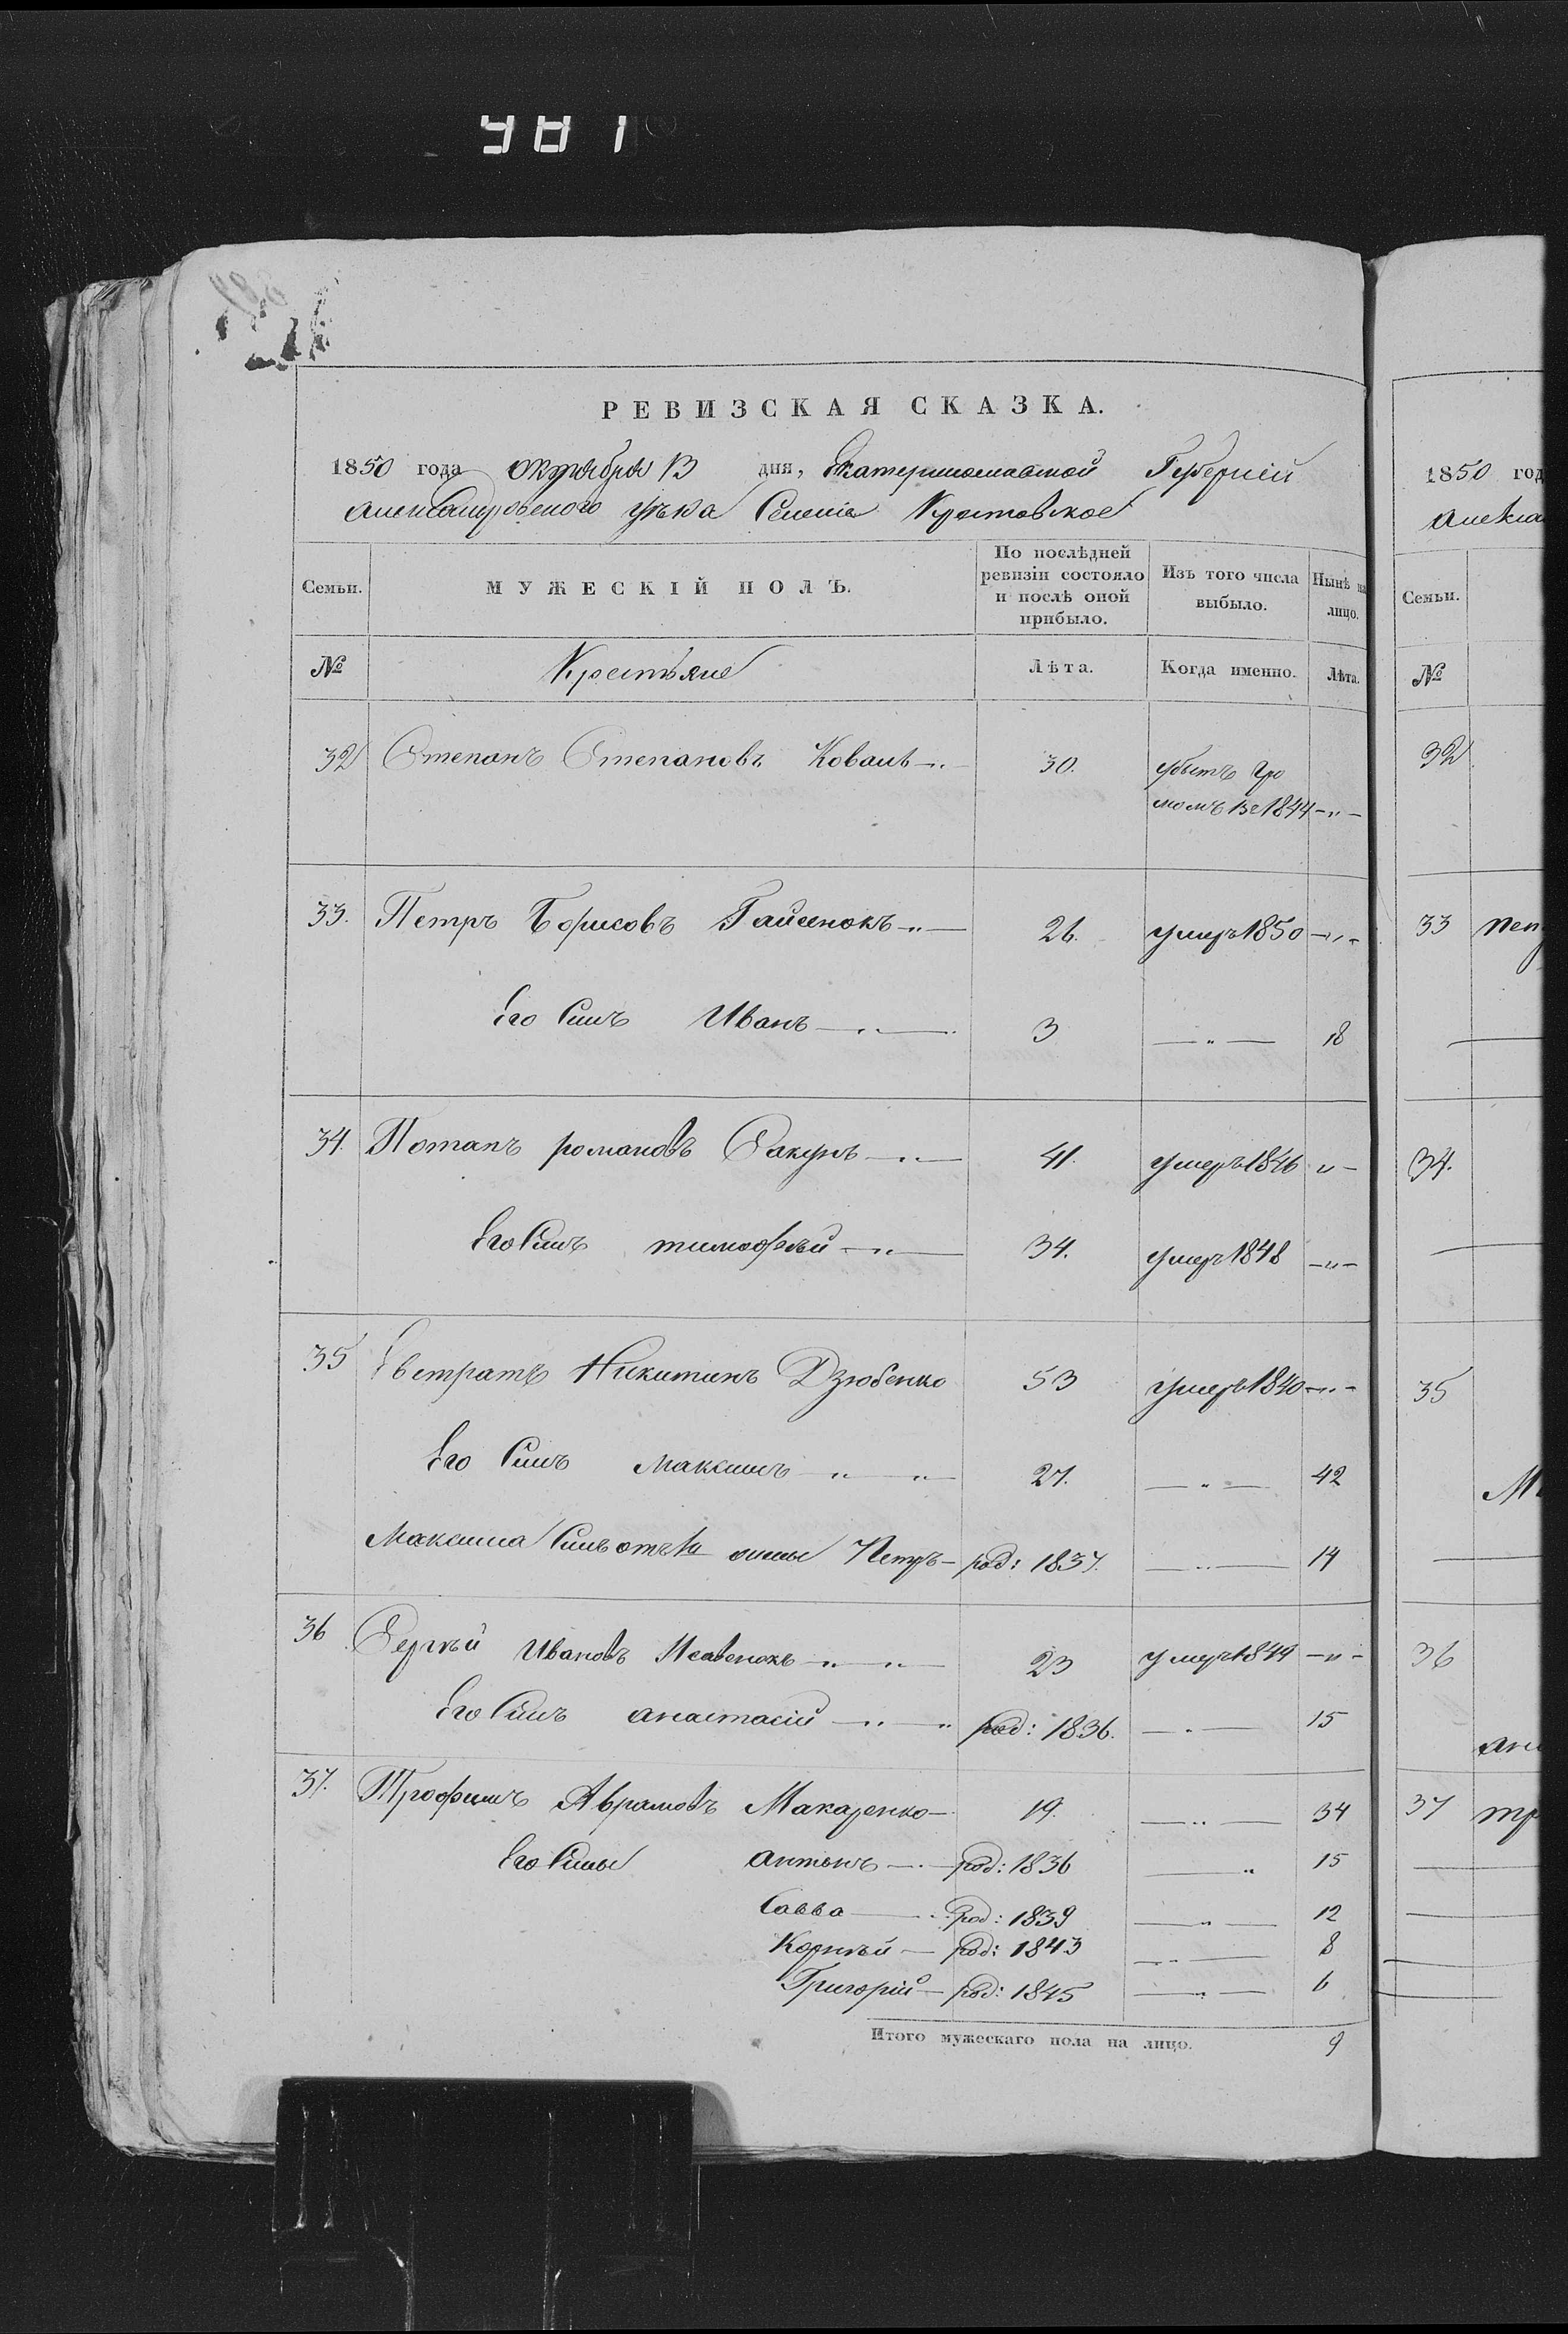 981
РЕВИЗСКАЯ СКАЗКА.
1850 года октября 13 дня, Екатеринославской Губерніи
Александровского уѣзда Селеніе Крестовское
Семьи. МУЖЕСКІЙ ПОЛЪ. По послѣдней ревизіи состояло и послѣ оной прибыло. Изъ того числа выбыло. Нынѣ на лицо.
№ Крестьяне Лѣта. Когда именно. Лѣта.
32 Степанъ Степановъ Коваль 30. убытъ гро
момъ Ве 1844 -"-
33. Петръ Борисовъ Гайсенокъ -"- 26. умеръ 1850 -"-
Его Синъ Иванъ -"- 3 -"- 18
34. Потапъ романовъ Сакунъ -"- 41. умеръ 1846 "-
Его Синъ тимофѣй -"- 34. умеръ 1848 -"-
35 Евстратъ Никитинъ Дзюбенко 53 умеръ 1840 -"-
Его Синъ Максимъ " " 27. -"- 42
Максима Синъ отъ 1й жены Петръ - род: 1837. -"- 14
36 Сергѣй Ивановъ -"-"- 23 умеръ 1849 -"-
Его Синъ анастасій -"-" род: 1836. -"- 15
37. Трофимъ Аврамовъ Макаренко - 19. -"- 34
Его Сины антонъ -"- род: 1836 -"- 15
Савва -"- род: 1839 -"- 12
Корнѣй - род: 1843 -"- 8
Григорій - род: 1845 -"- 6
Итого мужескаго пола на лицо. 9
1850 год
Алекса
Семьи.
№
32
33 Пет
34.
35
М
36
ана
37 тр